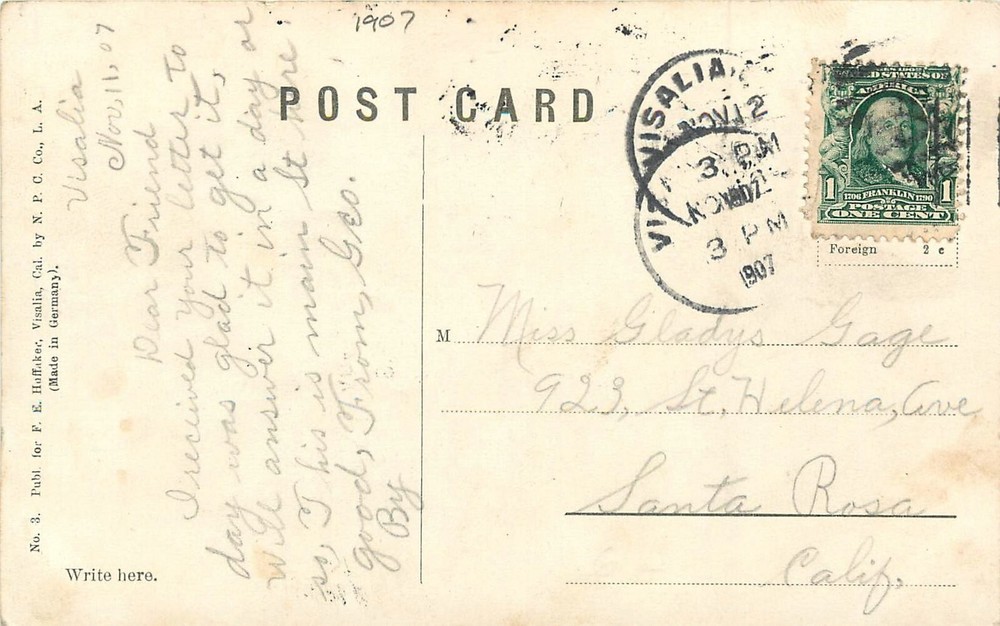 1907
POST CARD
VISALIA
NOV 12
3 PM
1907
VISALIA
3 PM
1907
UNITED STATES OF
AMERICA
1 1
1706 FRANKLIN 1790
POSTAGE
ONE CENT
Foreign 2 c
Visalia
Nov, 11, 07
Dear Friend
I received your letter to
day was glad to get it,
will answer it in a day or
so, This is main St here
good, From, Geo.
By
M Miss Gladys Gage
923, St, Helena, Ave
Santa Rosa
Calif.
Write here.
No. 3. Publ. for F. E. Huffaker, Visalia, Cal. by N. P. C. Co., L. A.
(Made in Germany).